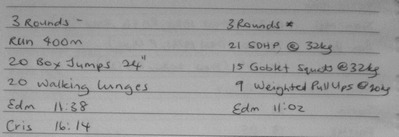 3 Rounds -
Run 400m
20 Box Jumps 24"
20 Walking Lunges
Edm 11:38
Cris 16:14
3 Rounds *
21 SDHP @ 32kg
15 Goblet Squats @ 32kg
9 Weighted Pull Ups @ 20kg
Edm 11:02